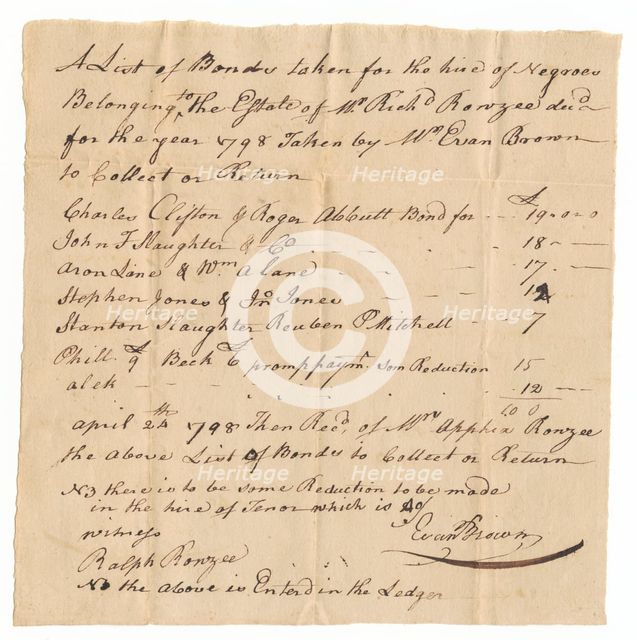 A List of Bonds taken for the hire of Negroes
Belonging to the Estate of Mr Richd Rowzee decd
for the year 1798 Taken by Mr Evan Brown
to Collect or Return
£
Charles Clifton & Roger Abbutt Bond for - - 19 - 0 - 0
John F Slaughter & Co - - - 18 - -
Aron Lane & Wm A Lane - - - 17 . -
Stephen Jones & Jno Jones - - -
Stanton Slaughter Reuben P Mitchell - 7
Phill £9 Beck £6 promp paymt. som Reduction 15
alek - - - - - - 12 - -
april 24th 1798 Then Recd. of Mrs Apphia Rowzee
the above List of Bonds to Collect or Return
NB there is to be some Reduction to be made
in the hire of Tenor which is 40/
witness
Evan Brown
Ralph Rowzee
NB the above is Enterd in the Ledger
Heritage
Heritage
Heritage
Heritage
Heritage
Heritage
Heritage
Heritage
C